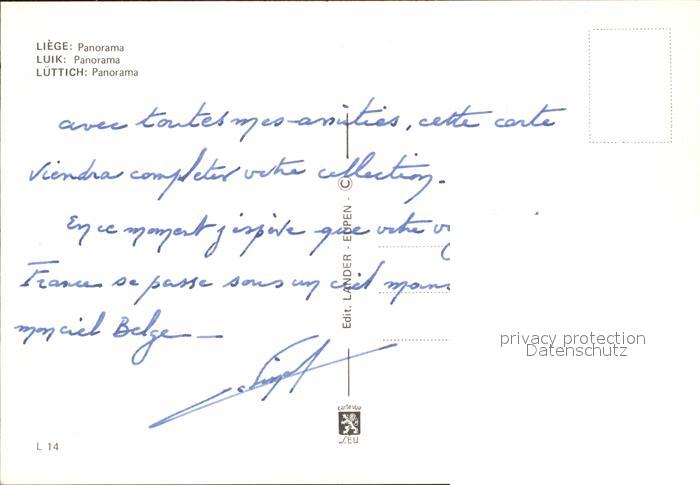 LIÈGE: Panorama
LUIK: Panorama
LÜTTICH: Panorama
avec toutes mes amitiés, cette carte
viendra completer votre collection.
En ce moment j'espère que votre
France se passe sous un ciel
mon ciel Belge —
Edit. LANDER - EUPEN - ©
privacy protection
Datenschutz
carte vue
L 14